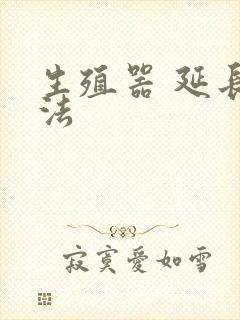 生殖器 延長
法
寂寞愛如雪